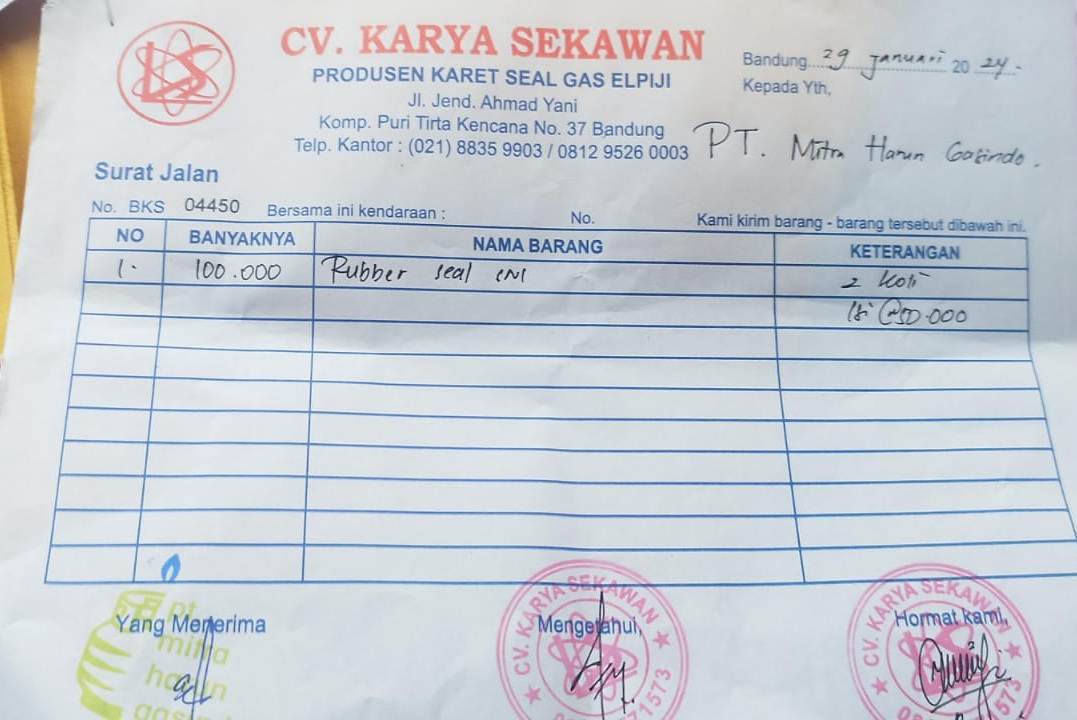 CV. KARYA SEKAWAN
PRODUSEN KARET SEAL GAS ELPIJI
Jl. Jend. Ahmad Yani
Komp. Puri Tirta Kencana No. 37 Bandung
Telp. Kantor : (021) 8835 9903 / 0812 9526 0003
Bandung 29 Januari 20 24.
Kepada Yth,
PT. Mitra Harun Gasindo.
Surat Jalan
No. BKS 04450 Bersama ini kendaraan : No. Kami kirim barang - barang tersebut dibawah ini.
NO BANYAKNYA NAMA BARANG KETERANGAN
1. 100.000 Rubber seal 2 Koli
isi @50.000
Yang Menerima Mengetahui, Hormat kami,
pt
mitra
harun
CV. KARYA SEKAWAN
71573
CV. KARYA SEKAWAN